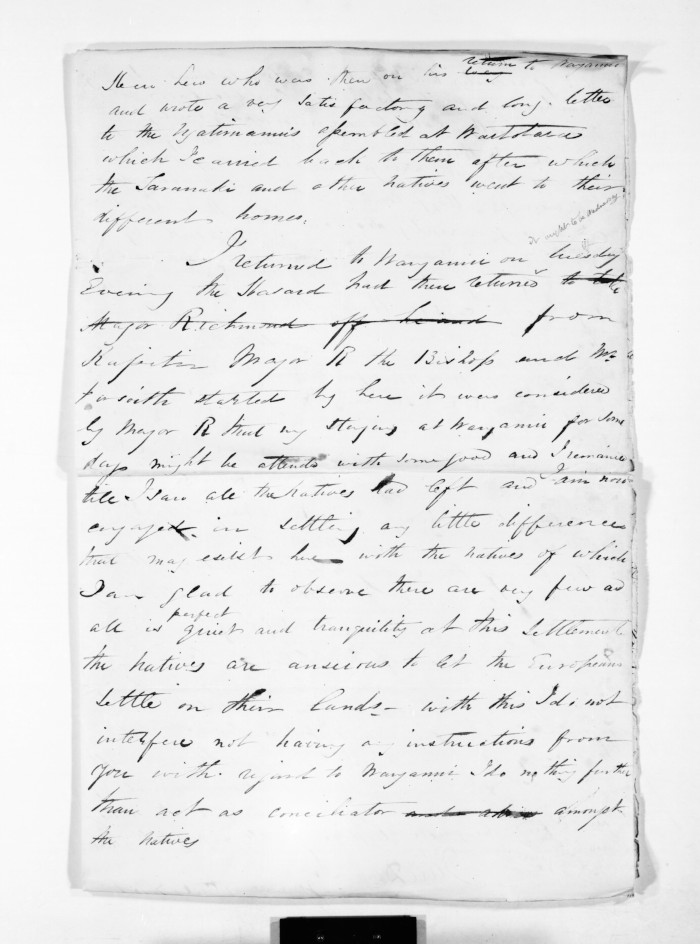 Heu heu who was then on his ~~way~~ return to Wanganui
and wrote a very satisfactory and long letter
to the Ngatiruanuis assembled at Waitotara
which I carried back to them after which
the Taranaki and other natives went to their
different homes.
I returned to Wanganui on Tuesday
Evening the Hazard had then returned ~~to take~~
~~Major Richmond off~~ from
Kapiti Major R the Bishop and Mr
started by here it was considered
by Major R that my staying at Wanganui for some
days might be attended with some good and I remained
till I saw all the natives had left and I am now
engaged in settling any little differences
that may exist here with the natives of which
I am glad to observe there are very few as
all is perfect quiet and tranquility at this Settlement
the natives are anxious to let the Europeans
settle on their lands - with this I do not
interfere not having any instructions from
you with regard to Wanganui I do nothing further
than act as conciliator amongst
the natives